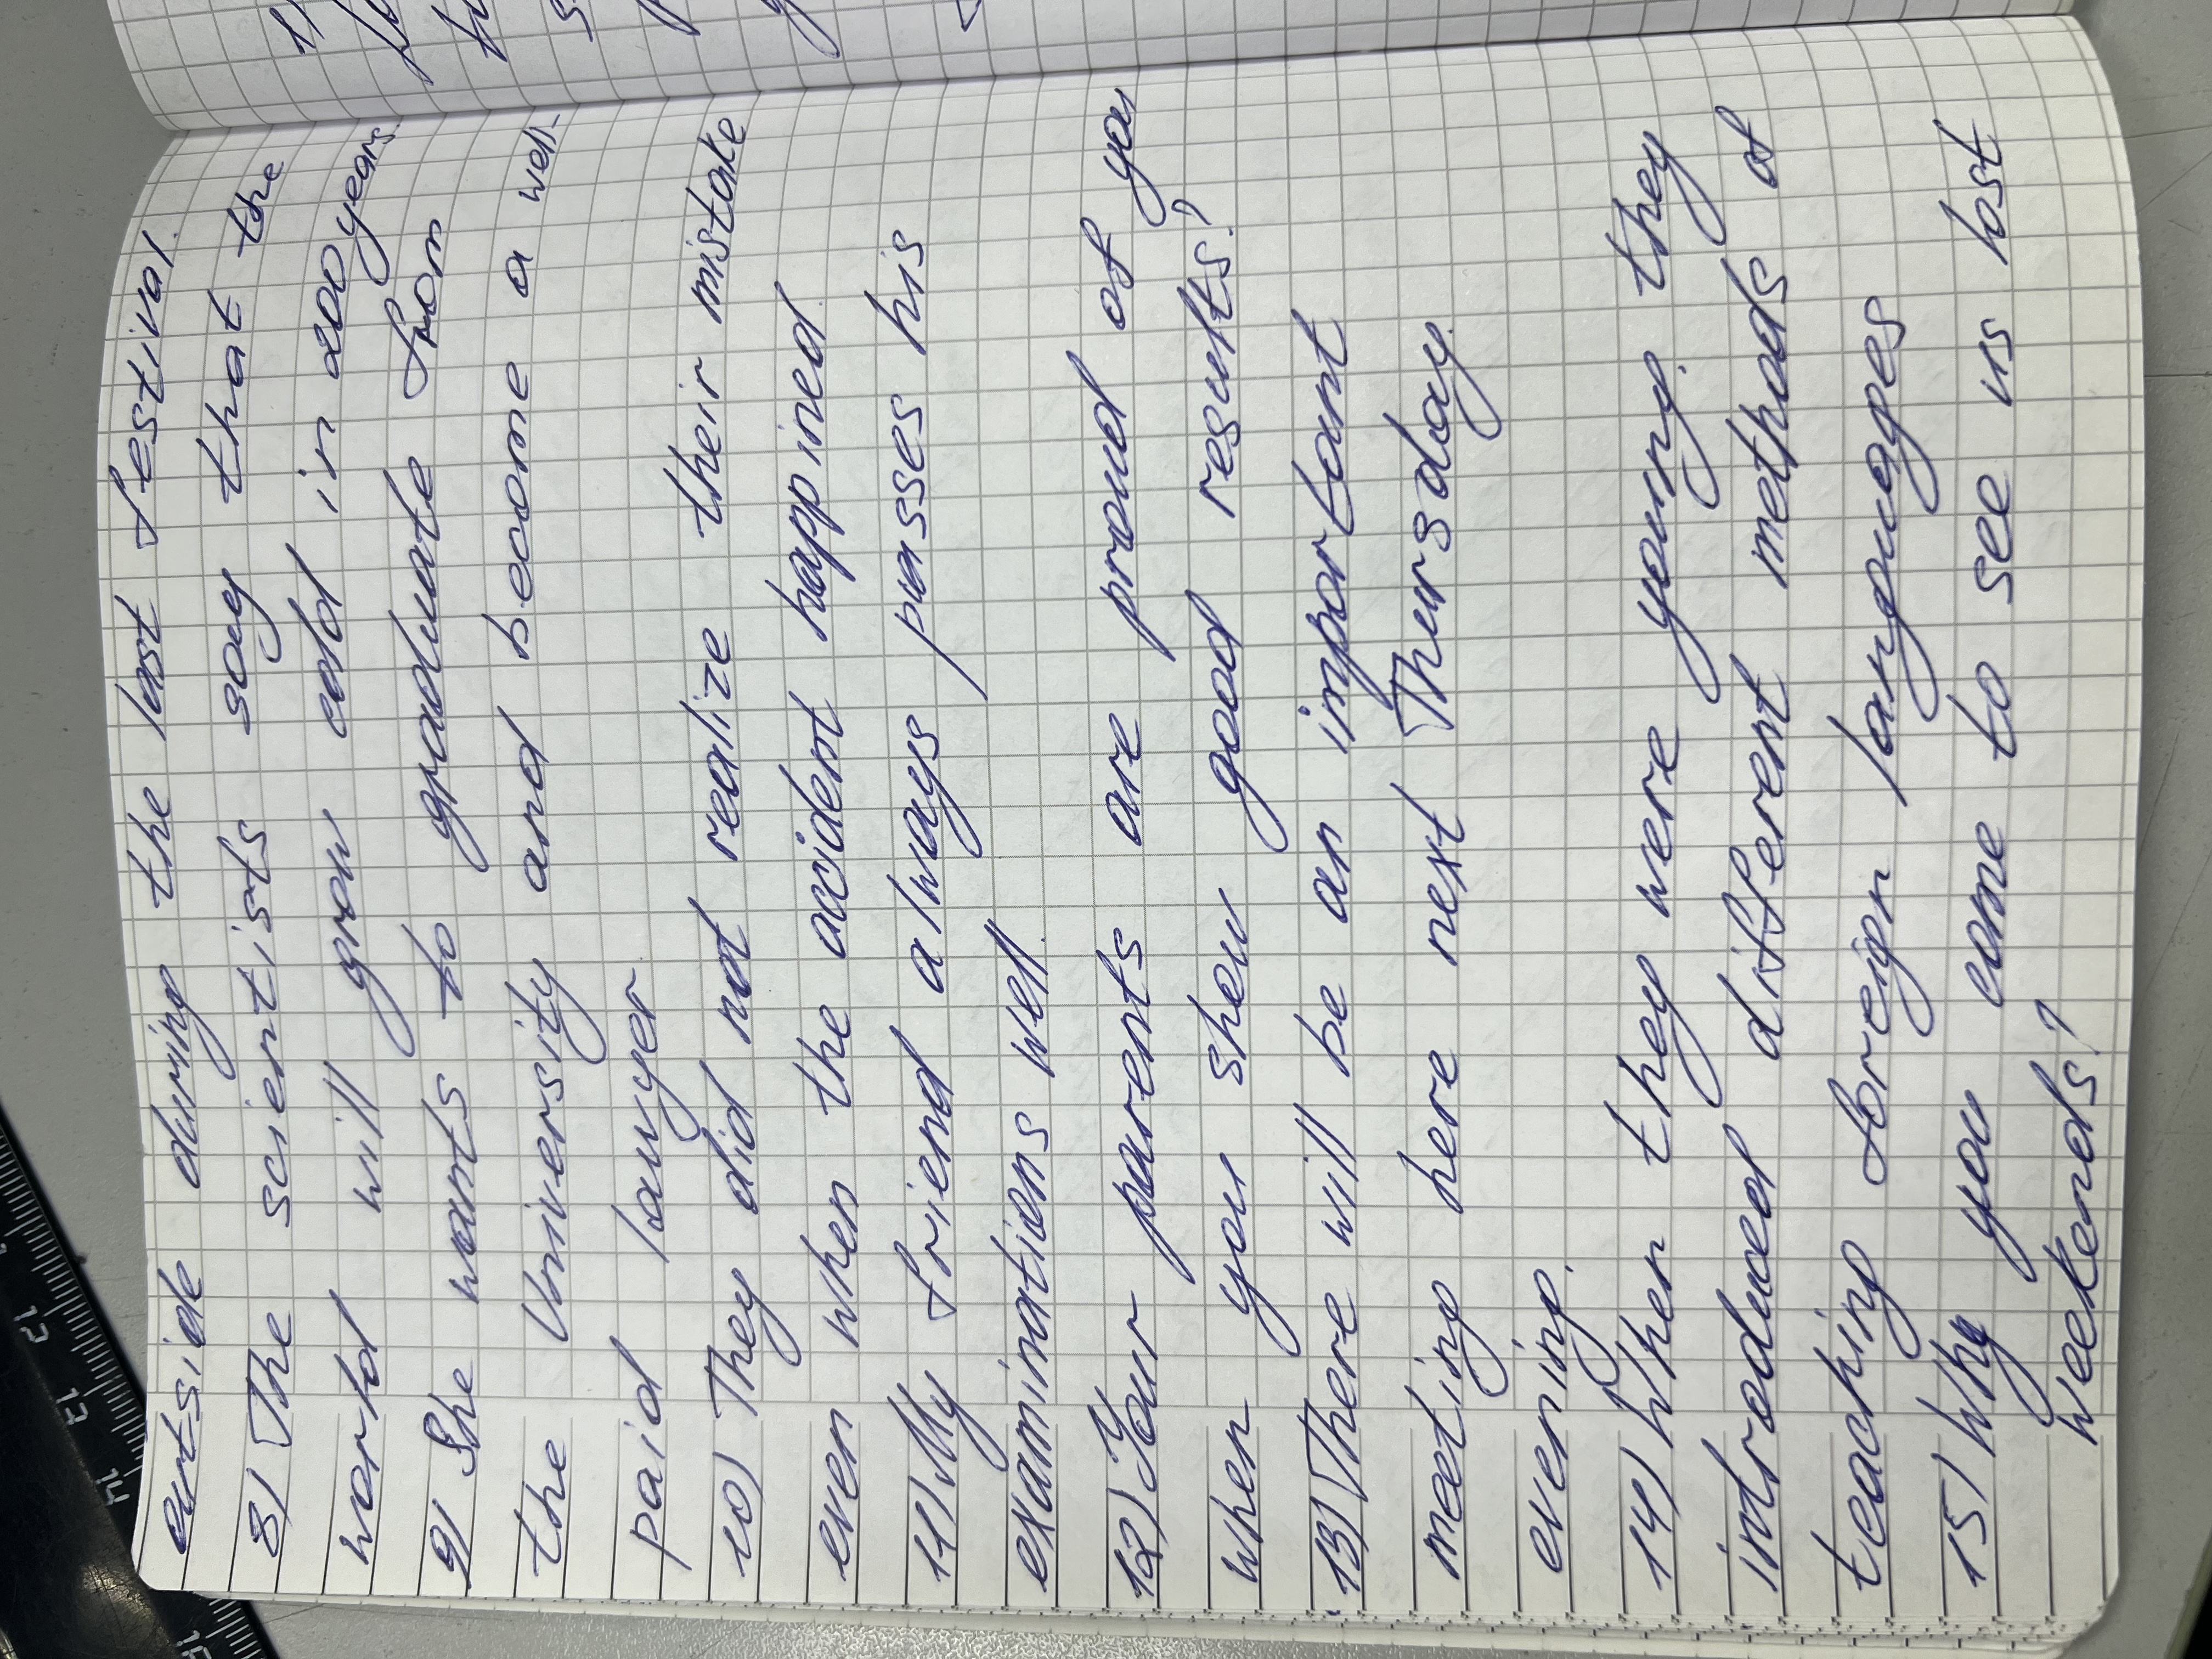 outside during the last festival.
8) The scientists say that the
world will grow cold in 200 years.
9) She wants to graduate from
the University and become a well-
paid lawyer
10) They did not realize their mistake
even when the accident happined.
11) My friend always passes his
examinations well.
12) Your parents are proud of you
when you shew good results?
13) There will be an important
meeting here next Thursday
evening.
14) When they were young. they
introduced different methods of
teaching foreign languages
15) Why you come to see us lost
weekends?